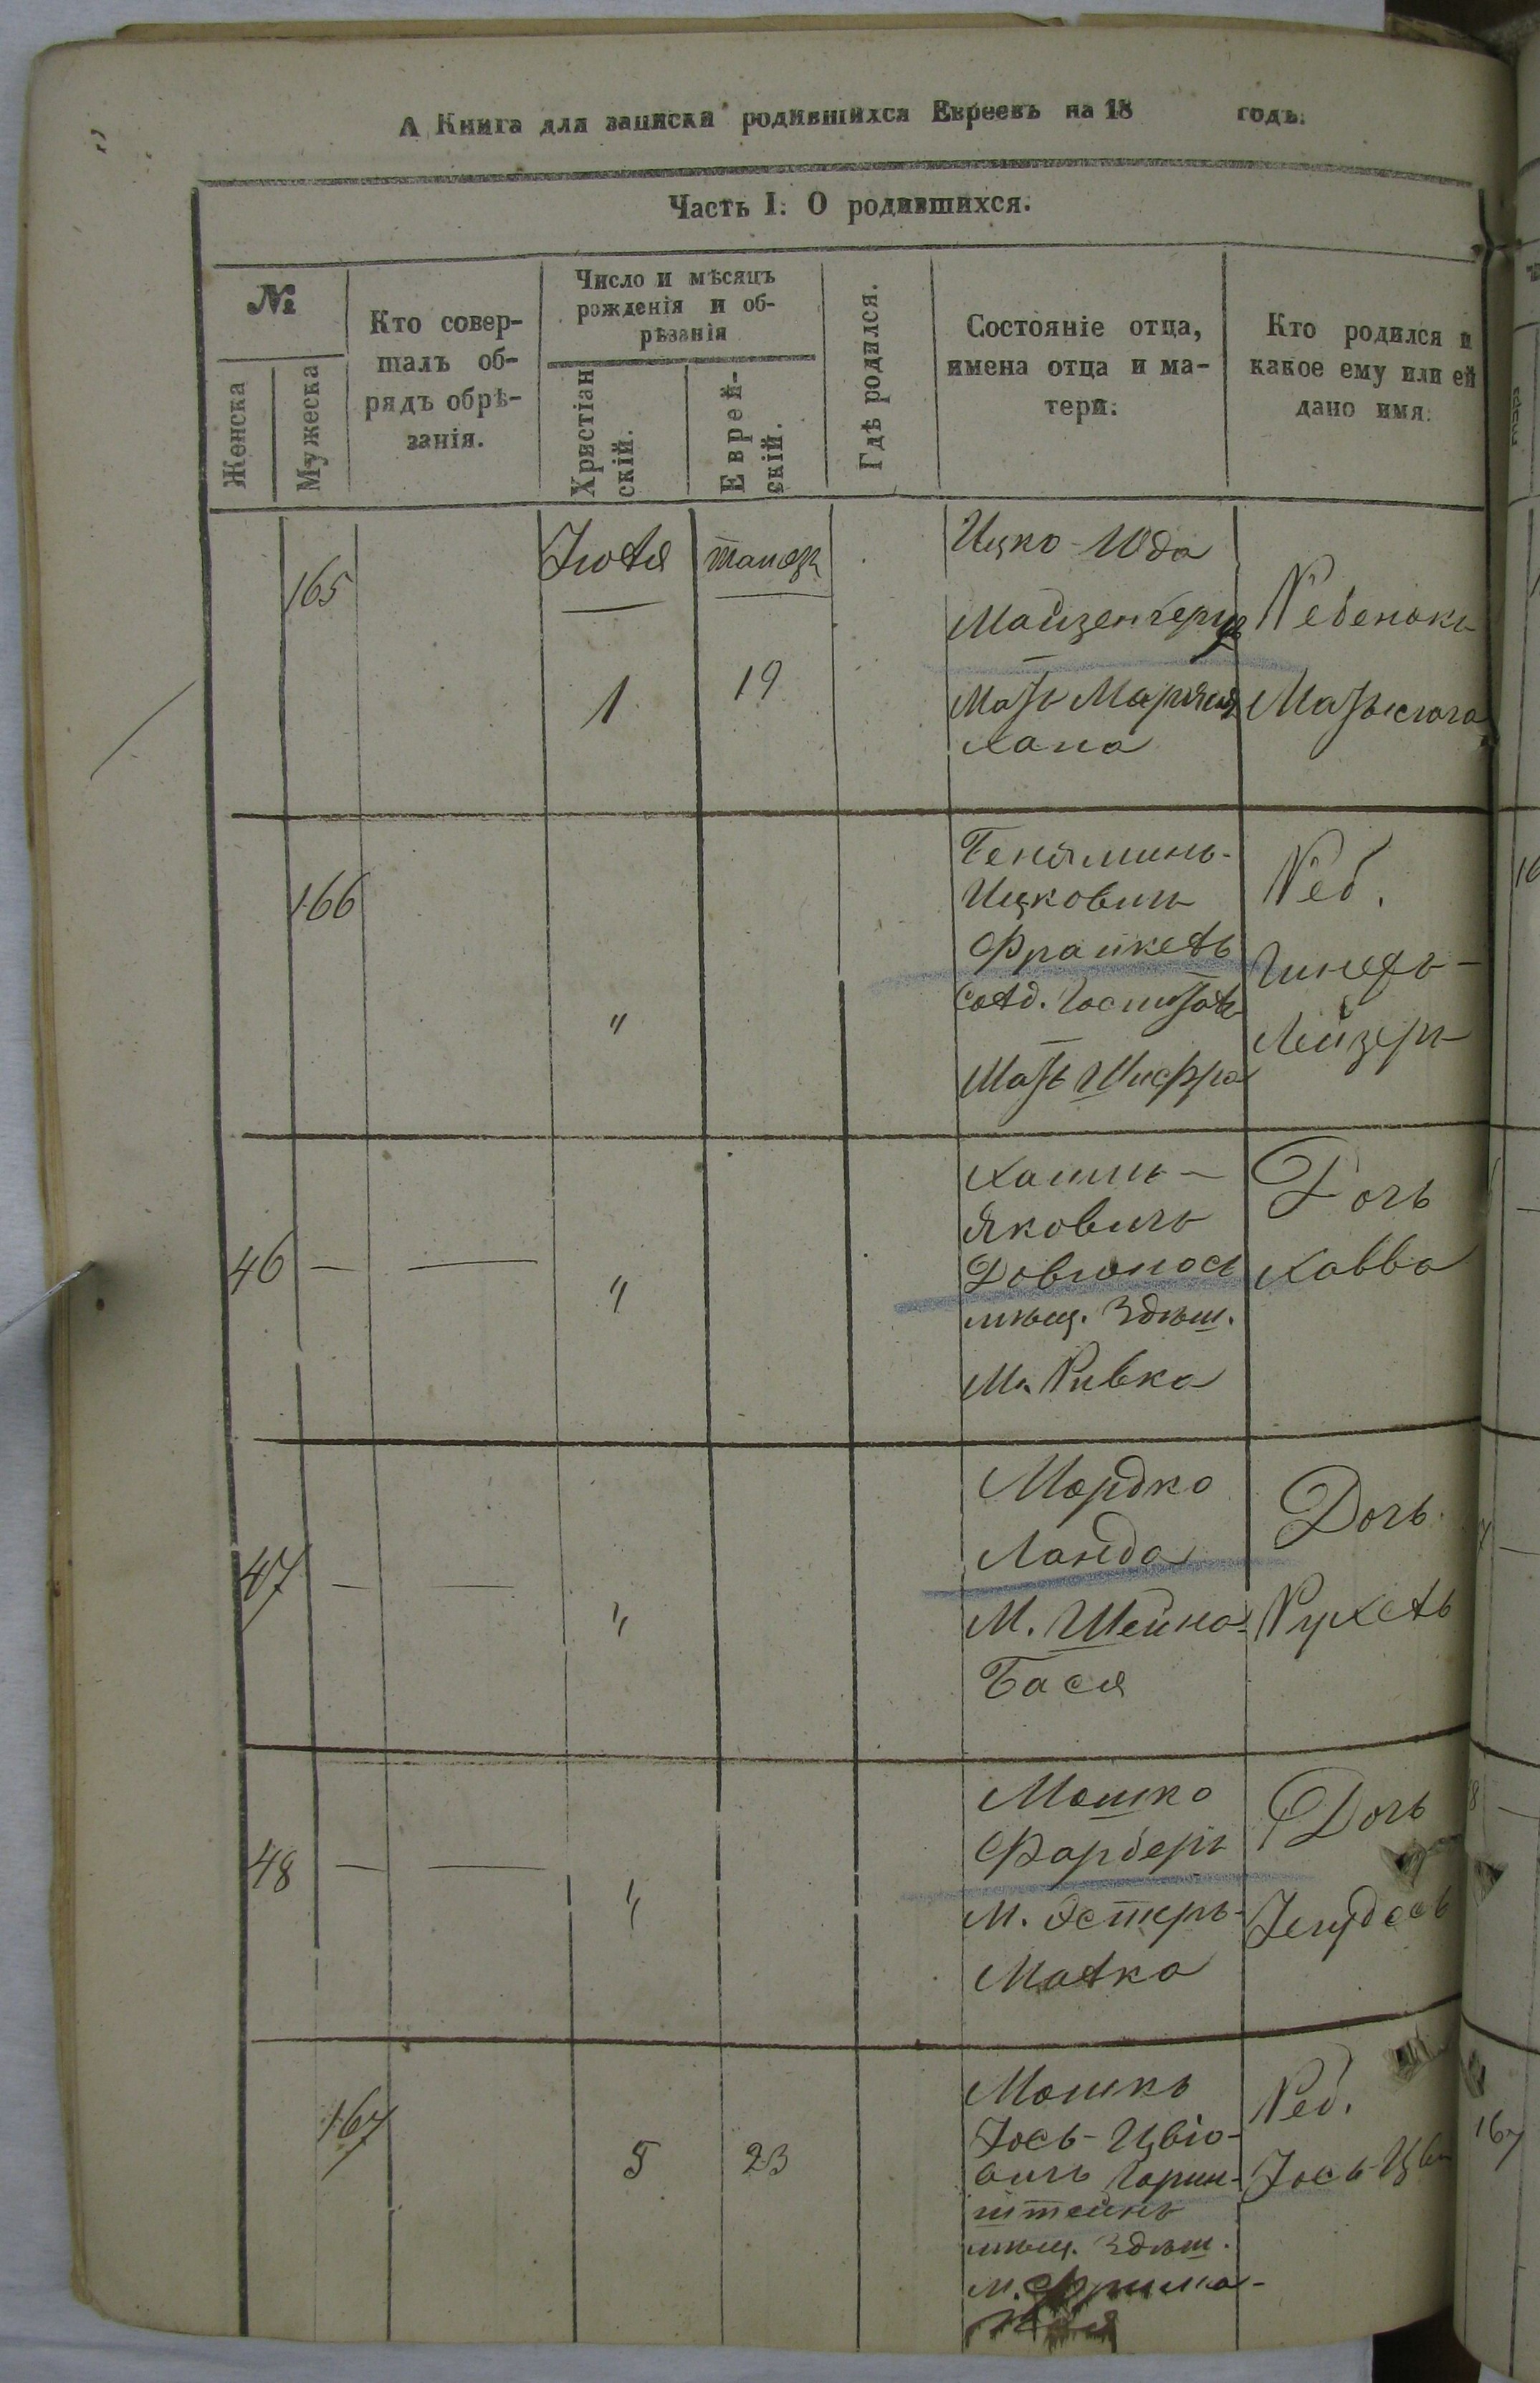 А Книга для записки родившихся Евреевъ на 18 годъ.
Часть I. О родившихся.
№
Женска
Мужеска
Кто совер-
шалъ об-
рядъ обрѣ-
занія.
Число и мѣсяцъ
рожденія и об-
рѣзанія
Христіан
скій.
Еврей-
скій.
Гдѣ родился.
Состояніе отца,
имена отца и ма-
тери.
Кто родился и
какое ему или ей
дано имя.
165
Іюля
1
19
Ицко-Юда
Майзенберг
Мать Марьяся
Хана
Ребенокъ
166
"
Бенямин-
Ицкович
Франкель
Мать Шифра
Реб.
Лейзеръ
46 — —
"
Хаимъ-
Яковичъ
Довгоносъ
мѣщ. Здѣш.
М. Ривка
Дочь
Хавва
47 — —
"
Мордко
Ланда
М. Шейна-
Бася
Дочь
Рухель
48 — —
"
Мошко
Фарберъ
М. Эстеръ-
Малка
Дочь
167
5
23
Мошко
Іось-Цвіо-
вичъ Горин-
штейнъ
мѣщ. Здѣш.
М. Фрима-
Реб.
Іось-Цви
167